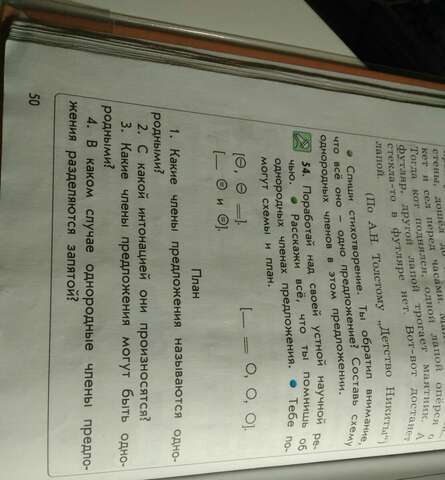 стены, дошёл до
кет и сел перед часами. М
Тогда кот поднялся, одной лапой опёрся о
футляр, другой лапой трогает маятник. А
стекла-то в футляре нет. Вот-вот достанет
лапой.
(По А.Н. Толстому „Детство Никиты“)
● Спиши стихотворение. Ты обратил внимание,
что всё оно — одно предложение? Составь схему
однородных членов в этом предложении.
54. Поработай над своей устной научной ре-
чью. ● Расскажи всё, что ты помнишь об
однородных членах предложения. ● Тебе по-
могут схемы и план.
[⊖, ⊖ =]. [— = O, O, O].
[— ⊜ и ⊜].
План
1. Какие члены предложения называются одно-
родными?
2. С какой интонацией они произносятся?
3. Какие члены предложения могут быть одно-
родными?
4. В каком случае однородные члены предло-
жения разделяются запятой?
50